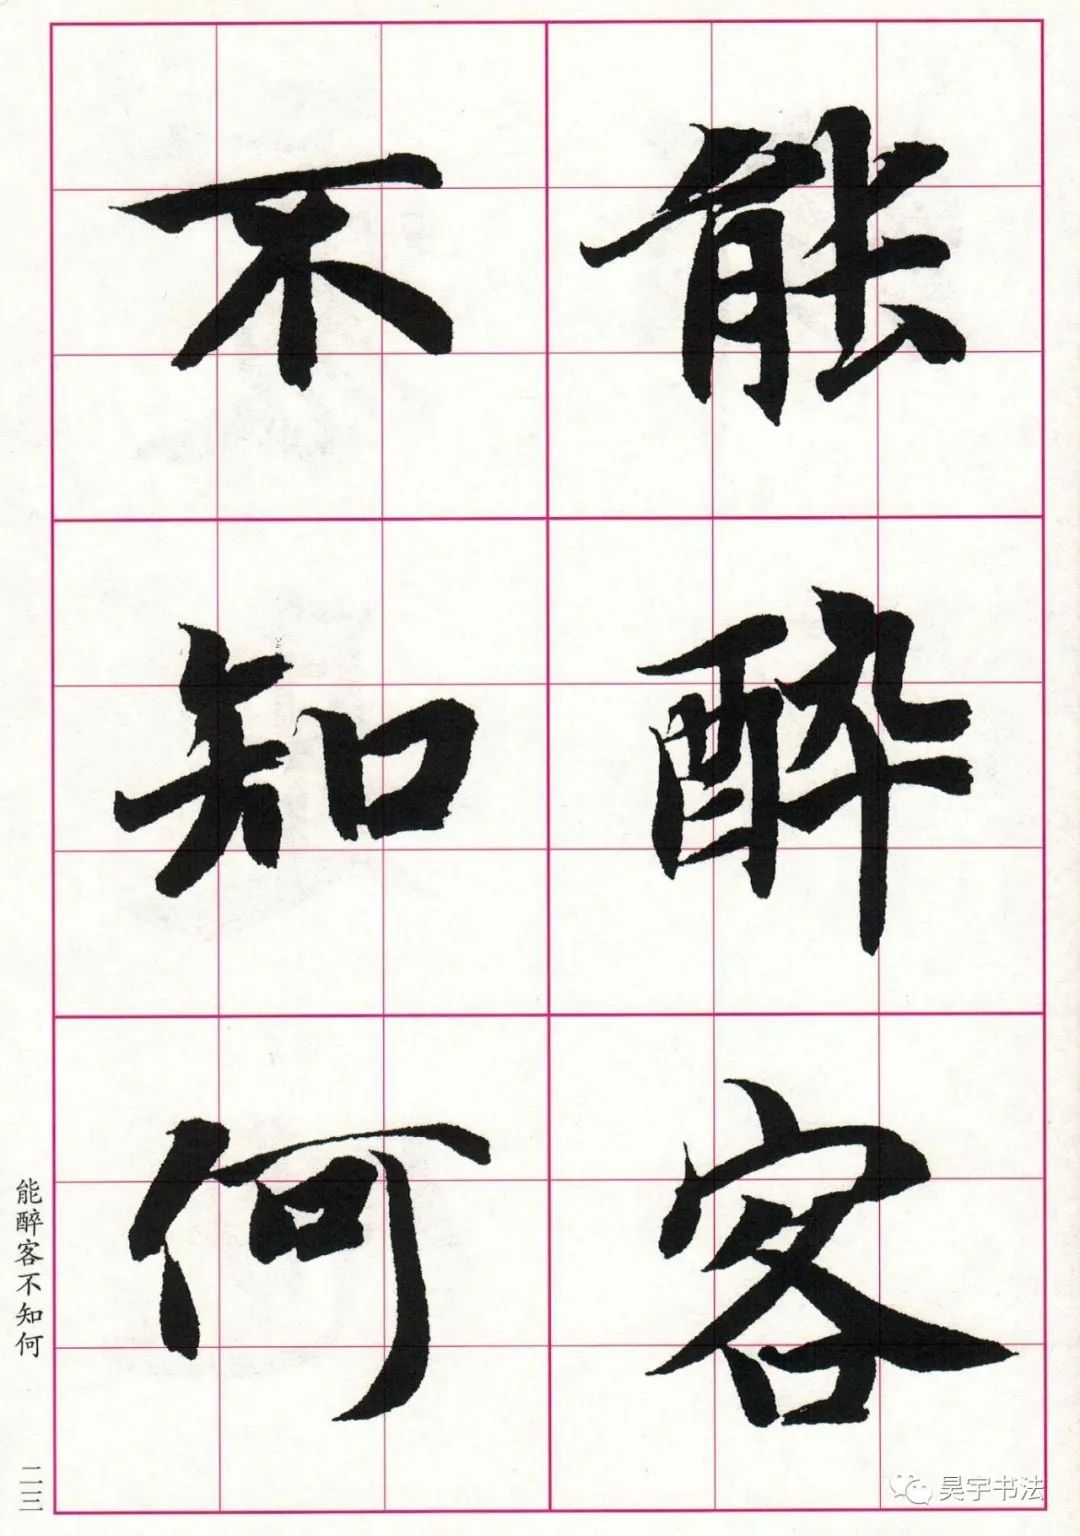 能醉客
不知何
能醉客不知何
二三
昊宇书法